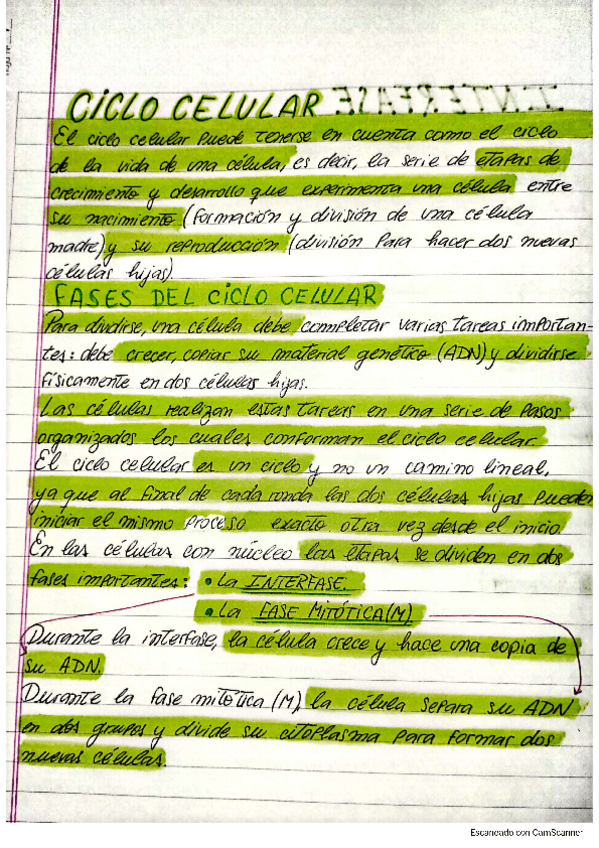 CICLO CELULAR INTERFASE
El ciclo celular puede tenerse en cuenta como el ciclo
de la vida de una célula, es decir, la serie de etapas de
crecimiento y desarrollo que experimenta una célula entre
su nacimiento (formación y división de una célula
madre) y su reproducción (división para hacer dos nuevas
células hijas).
FASES DEL CICLO CELULAR
Para dividirse, una célula debe completar varias tareas importan-
tes: debe crecer, copiar su material genético (ADN) y dividirse
físicamente en dos células hijas.
Las células realizan estas tareas en una serie de pasos
organizados los cuales conforman el ciclo celular.
El ciclo celular es un ciclo y no un camino lineal,
ya que al final de cada ronda las dos células hijas pueden
iniciar el mismo proceso exacto otra vez desde el inicio.
En las células con núcleo las etapas se dividen en dos
fases importantes: • La INTERFASE.
• La FASE MITÓTICA (M)
Durante la interfase, la célula crece y hace una copia de
su ADN.
Durante la fase mitótica (M), la célula separa su ADN
en dos grupos y divide su citoplasma para formar dos
nuevas células.
Escaneado con CamScanner